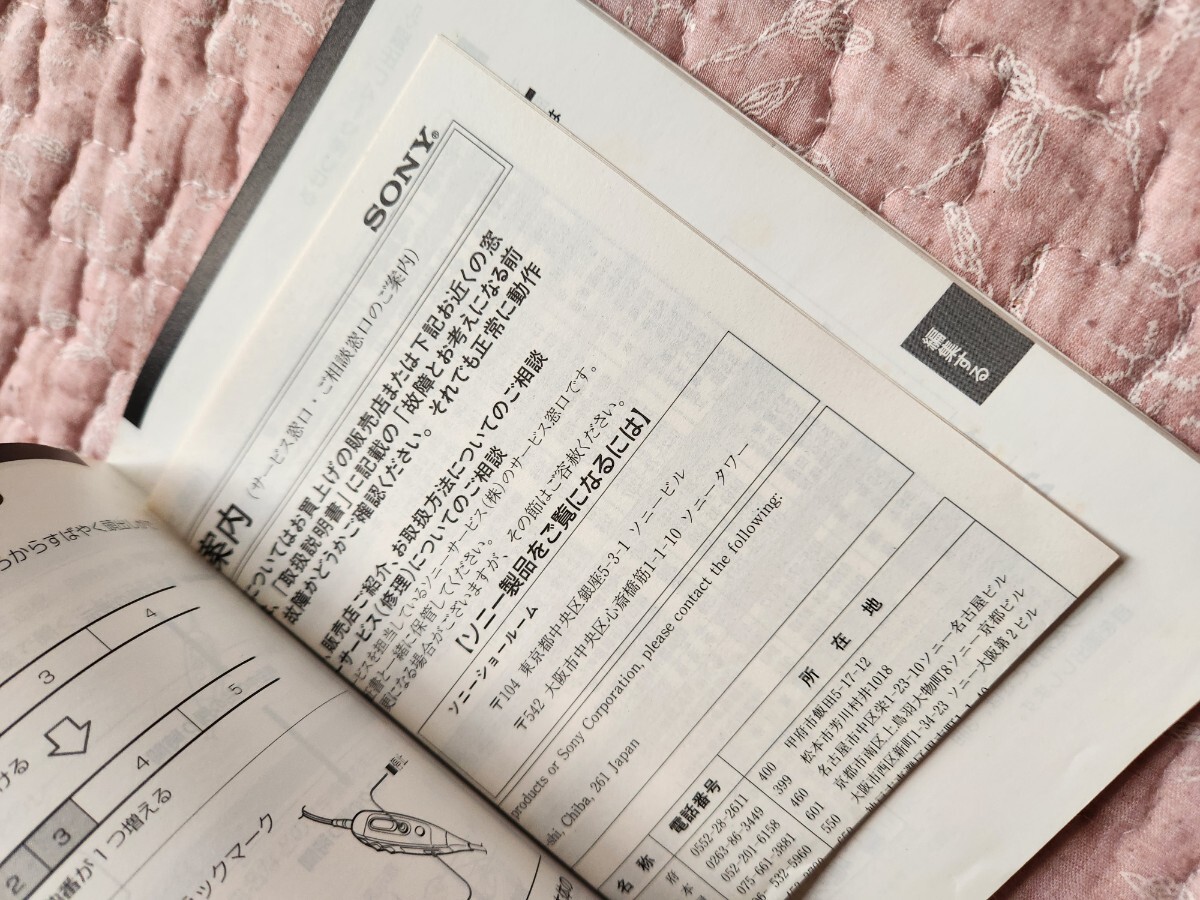 SONY®
案内
(サービス窓口・ご相談窓口のご案内)
についてはお買上げの販売店または下記お近くの窓
「取扱説明書」に記載の「故障とお考えになる前
故障かどうかご確認ください。それでも正常に動作
販売店ご紹介、お取扱方法についてのご相談
サービス(修理)についてのご相談
ビスを担当しているソニーサービス(株)のサービス窓口です。
書と一緒に保管してください。
更になる場合がございますが、その節はご容赦ください。
【ソニー製品をご覧になるには】
ソニーショールーム
〒104 東京都中央区銀座5-3-1 ソニービル
〒542 大阪市中央区心斎橋筋1-1-10 ソニータワー
products or Sony Corporation, please contact the following:
shi, Chiba, 261 Japan
名称
電話番号
所在地
0552-28-2611
400
甲府市飯田5-17-12
0263-86-3449
399
松本市芳川村井1018
052-201-6158
460
名古屋市中区栄1-23-10ソニー名古屋ビル
075-661-3881
601
京都市南区上鳥羽大物町8ソニー京都ビル
532-5960
550
大阪市西区新町1-34-23 ソニー大阪第2ビル
編集する
つからすばやく
3
4
ける
4
5
2
3
番が1つ増える
ックマーク